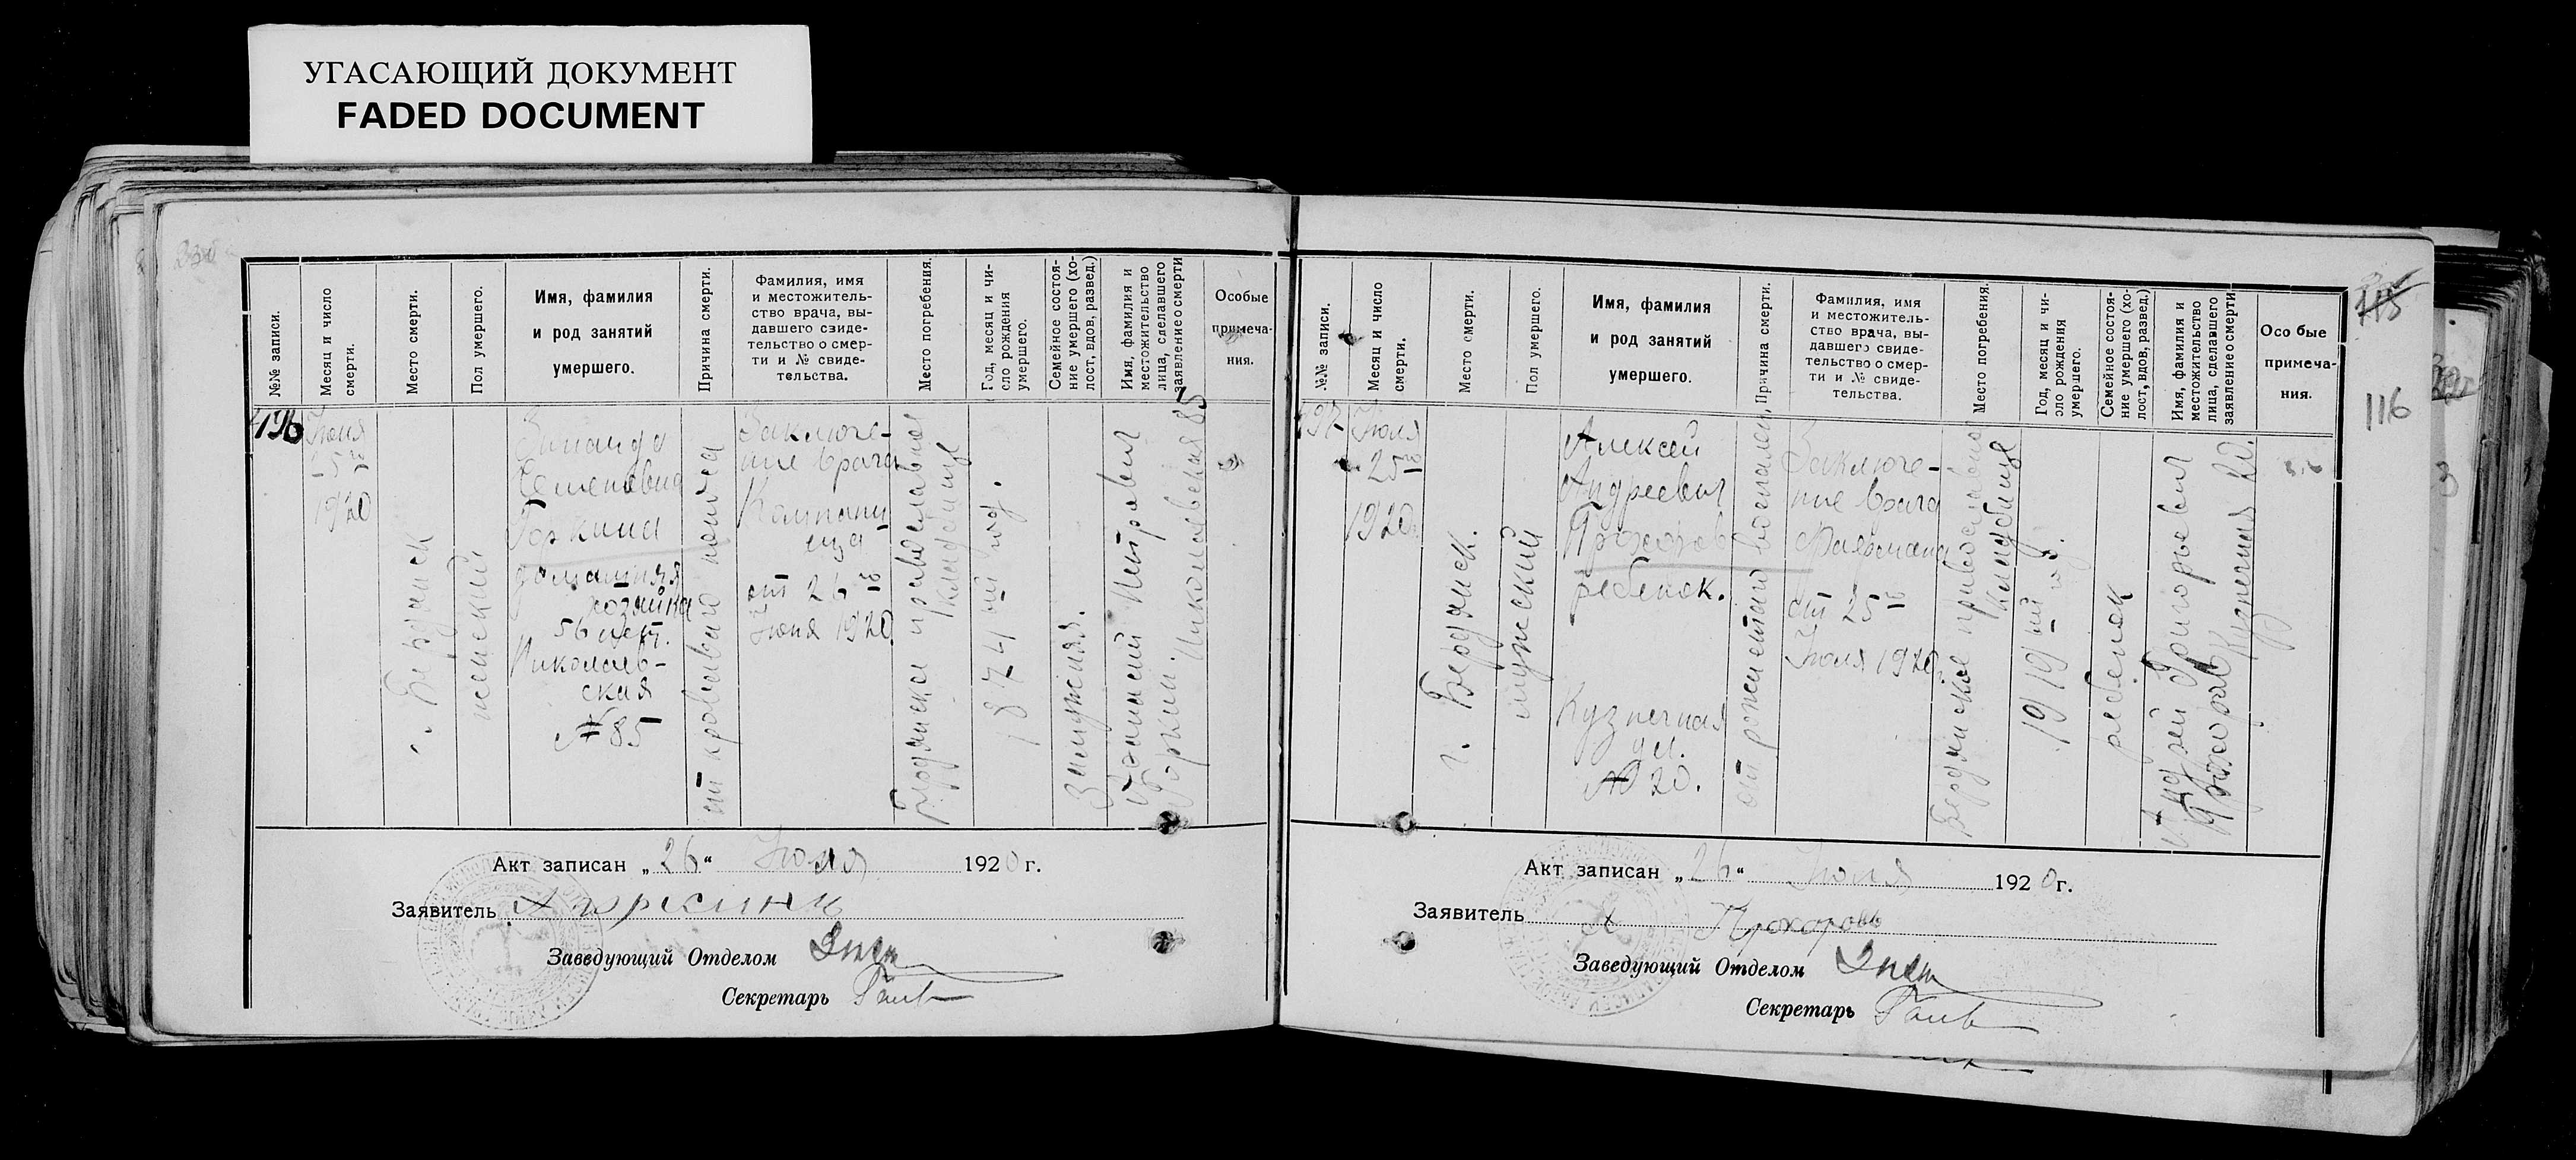 УГАСАЮЩИЙ ДОКУМЕНТ
FADED DOCUMENT
№№ записи.
Месяц и число
смерти.
Место смерти.
Пол умершего.
Имя, фамилия
и род занятий
умершего.
Причина смерти.
Фамилия, имя
и местожитель-
ство врача, вы-
давшего свиде-
тельство о смер-
ти и № свиде-
тельства.
Место погребения.
Год, месяц и чи-
сло рождения
умершего.
Семейное состоя-
ние умершего (хо-
лост, вдов, развед.)
Имя, фамилия и
местожительство
лица, сделавшего
заявление о смерти
Особые
примеча-
ния.
496
Июля
1920
г. Бердянск
женский
Зинаида
Семеновна
Горкина
домашняя
хозяйка
56 лет.
Николаев-
ская
№ 85
от кровавого поноса
Заключе-
ние врача
от 26 го
Июля 1920
Бердянское православное
кладбище
1874 ый год.
Замужняя.
Петрович
Горкин. Николаевская 85
Акт записан „26“ Июля 1920 г.
Заявитель
Заведующий Отделом
Секретарь
№№ записи.
Месяц и число
смерти.
Место смерти.
Пол умершего.
Имя, фамилия
и род занятий
умершего.
Причина смерти.
Фамилия, имя
и местожитель-
ство врача, вы-
давшего свиде-
тельство о смер-
ти и № свиде-
тельства.
Место погребения.
Год, месяц и чи-
сло рождения
умершего.
Семейное состоя-
ние умершего (хо-
лост, вдов, развед.)
Имя, фамилия и
местожительство
лица, сделавшего
заявление о смерти
Особые
примеча-
ния.
115
116
497
Июля
25 го
1920.
г. Бердянск.
мужской
Алексей
Андреевич
Прохоров
ребенок.
Кузнечная
ул.
№ 20.
от рожистого воспален.
Заключе-
ние врача
от 25 го
Июля 1920.
Бердянское православное
кладбище
1919 ый год.
ребенок
Андрей Григорьевич
Прохоров Кузнечная 20.
Акт записан „26“ Июля 1920 г.
Заявитель х Прохоровъ
Заведующий Отделом
Секретарь